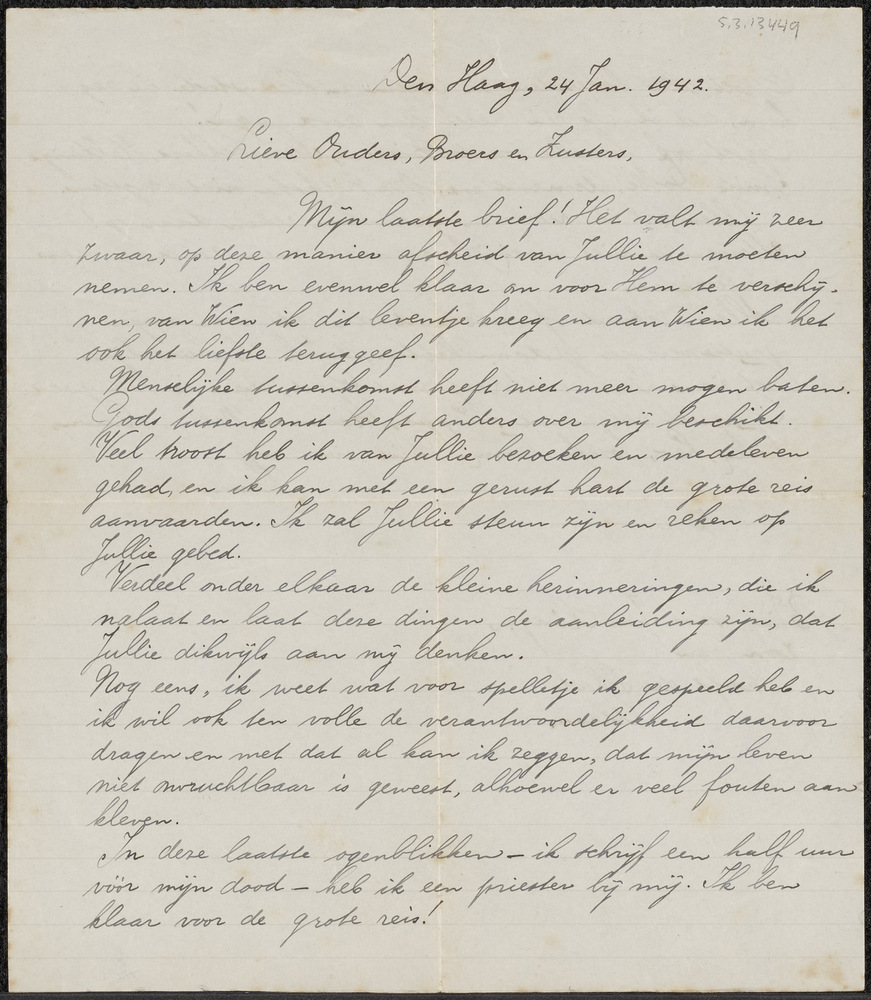 5.3.13449
Den Haag, 24 Jan. 1942.
Lieve Ouders, Broers en Zusters,
Mijn laatste brief! Het valt mij zeer
zwaar, op deze manier afscheid van Jullie te moeten
nemen. Ik ben evenwel klaar om voor Hem te verschij-
nen, van Wien ik dit leventje kreeg en aan Wien ik het
ook het liefste terug geef.
Menselijke tussenkomst heeft niet meer mogen baten.
Gods tussenkomst heeft anders over mij beschikt.
Veel troost heb ik van Jullie bezoeken en medeleven
gehad, en ik kan met een gerust hart de grote reis
aanvaarden. Ik zal Jullie steun zijn en reken op
Jullie gebed.
Verdeel onder elkaar de kleine herinneringen, die ik
nalaat en laat deze dingen de aanleiding zijn, dat
Jullie dikwijls aan mij denken.
Nog eens, ik weet wat voor spelletje ik gespeeld heb en
ik wil ook ten volle de verantwoordelijkheid daarvoor
dragen en met dat al kan ik zeggen, dat mijn leven
niet onvruchtbaar is geweest, alhoewel er veel fouten aan
kleven.
In deze laatste ogenblikken – ik schrijf een half uur
vóór mijn dood – heb ik een priester bij mij. Ik ben
klaar voor de grote reis!